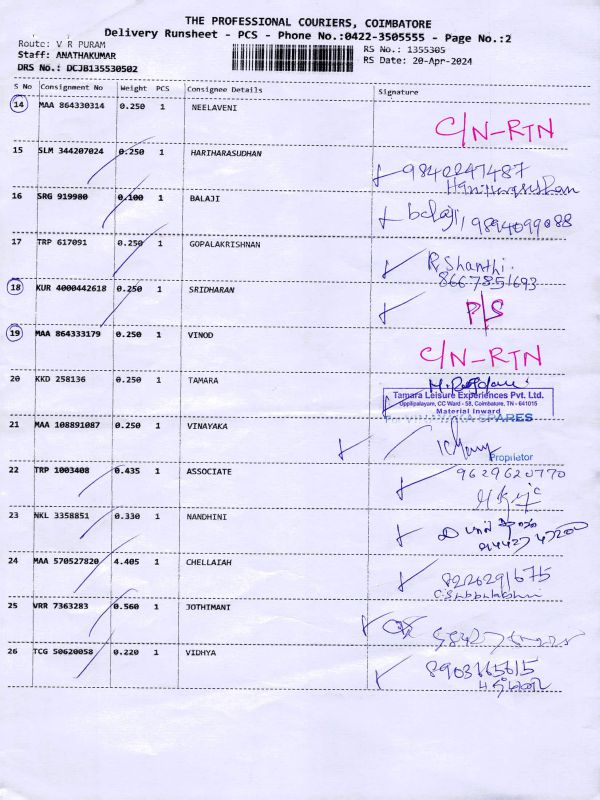 THE PROFESSIONAL COURIERS, COIMBATORE
Delivery Runsheet - PCS - Phone No.:0422-3505555 - Page No.:2
Route: V R PURAM
RS No.: 1355305
Staff: ANATHAKUMAR
RS Date: 20-Apr-2024
DRS No.: DCJB135530502
S No Consignment No Weight PCS Consignee Details Signature
14 MAA 864330314 0.250 1 NEELAVENI
C/N-RTN
15 SLM 344207024 0.250 1 HARIHARASUDHAN
9840247487
16 SRG 919980 0.100 1 BALAJI
balaji, 9894099088
17 TRP 617091 0.250 1 GOPALAKRISHNAN
R. Shanthi.
8667851693
18 KUR 4000442618 0.250 1 SRIDHARAN
P/S
19 MAA 864333179 0.250 1 VINOD
C/N-RTN
20 KKD 258136 0.250 1 TAMARA
Tamara Leisure Experiences Pvt. Ltd.
Uppilipalayam, CC Ward - 58, Coimbatore, TN - 641015
Material Inward
SPARES
21 MAA 108891087 0.250 1 VINAYAKA
Proprietor
22 TRP 1003408 0.435 1 ASSOCIATE
9629620770
23 NKL 3358851 0.330 1 NANDHINI
24 MAA 570527820 4.405 1 CHELLAIAH
8226291675
25 VRR 7363283 0.560 1 JOTHIMANI
26 TCG 50620058 0.220 1 VIDHYA
8903165615